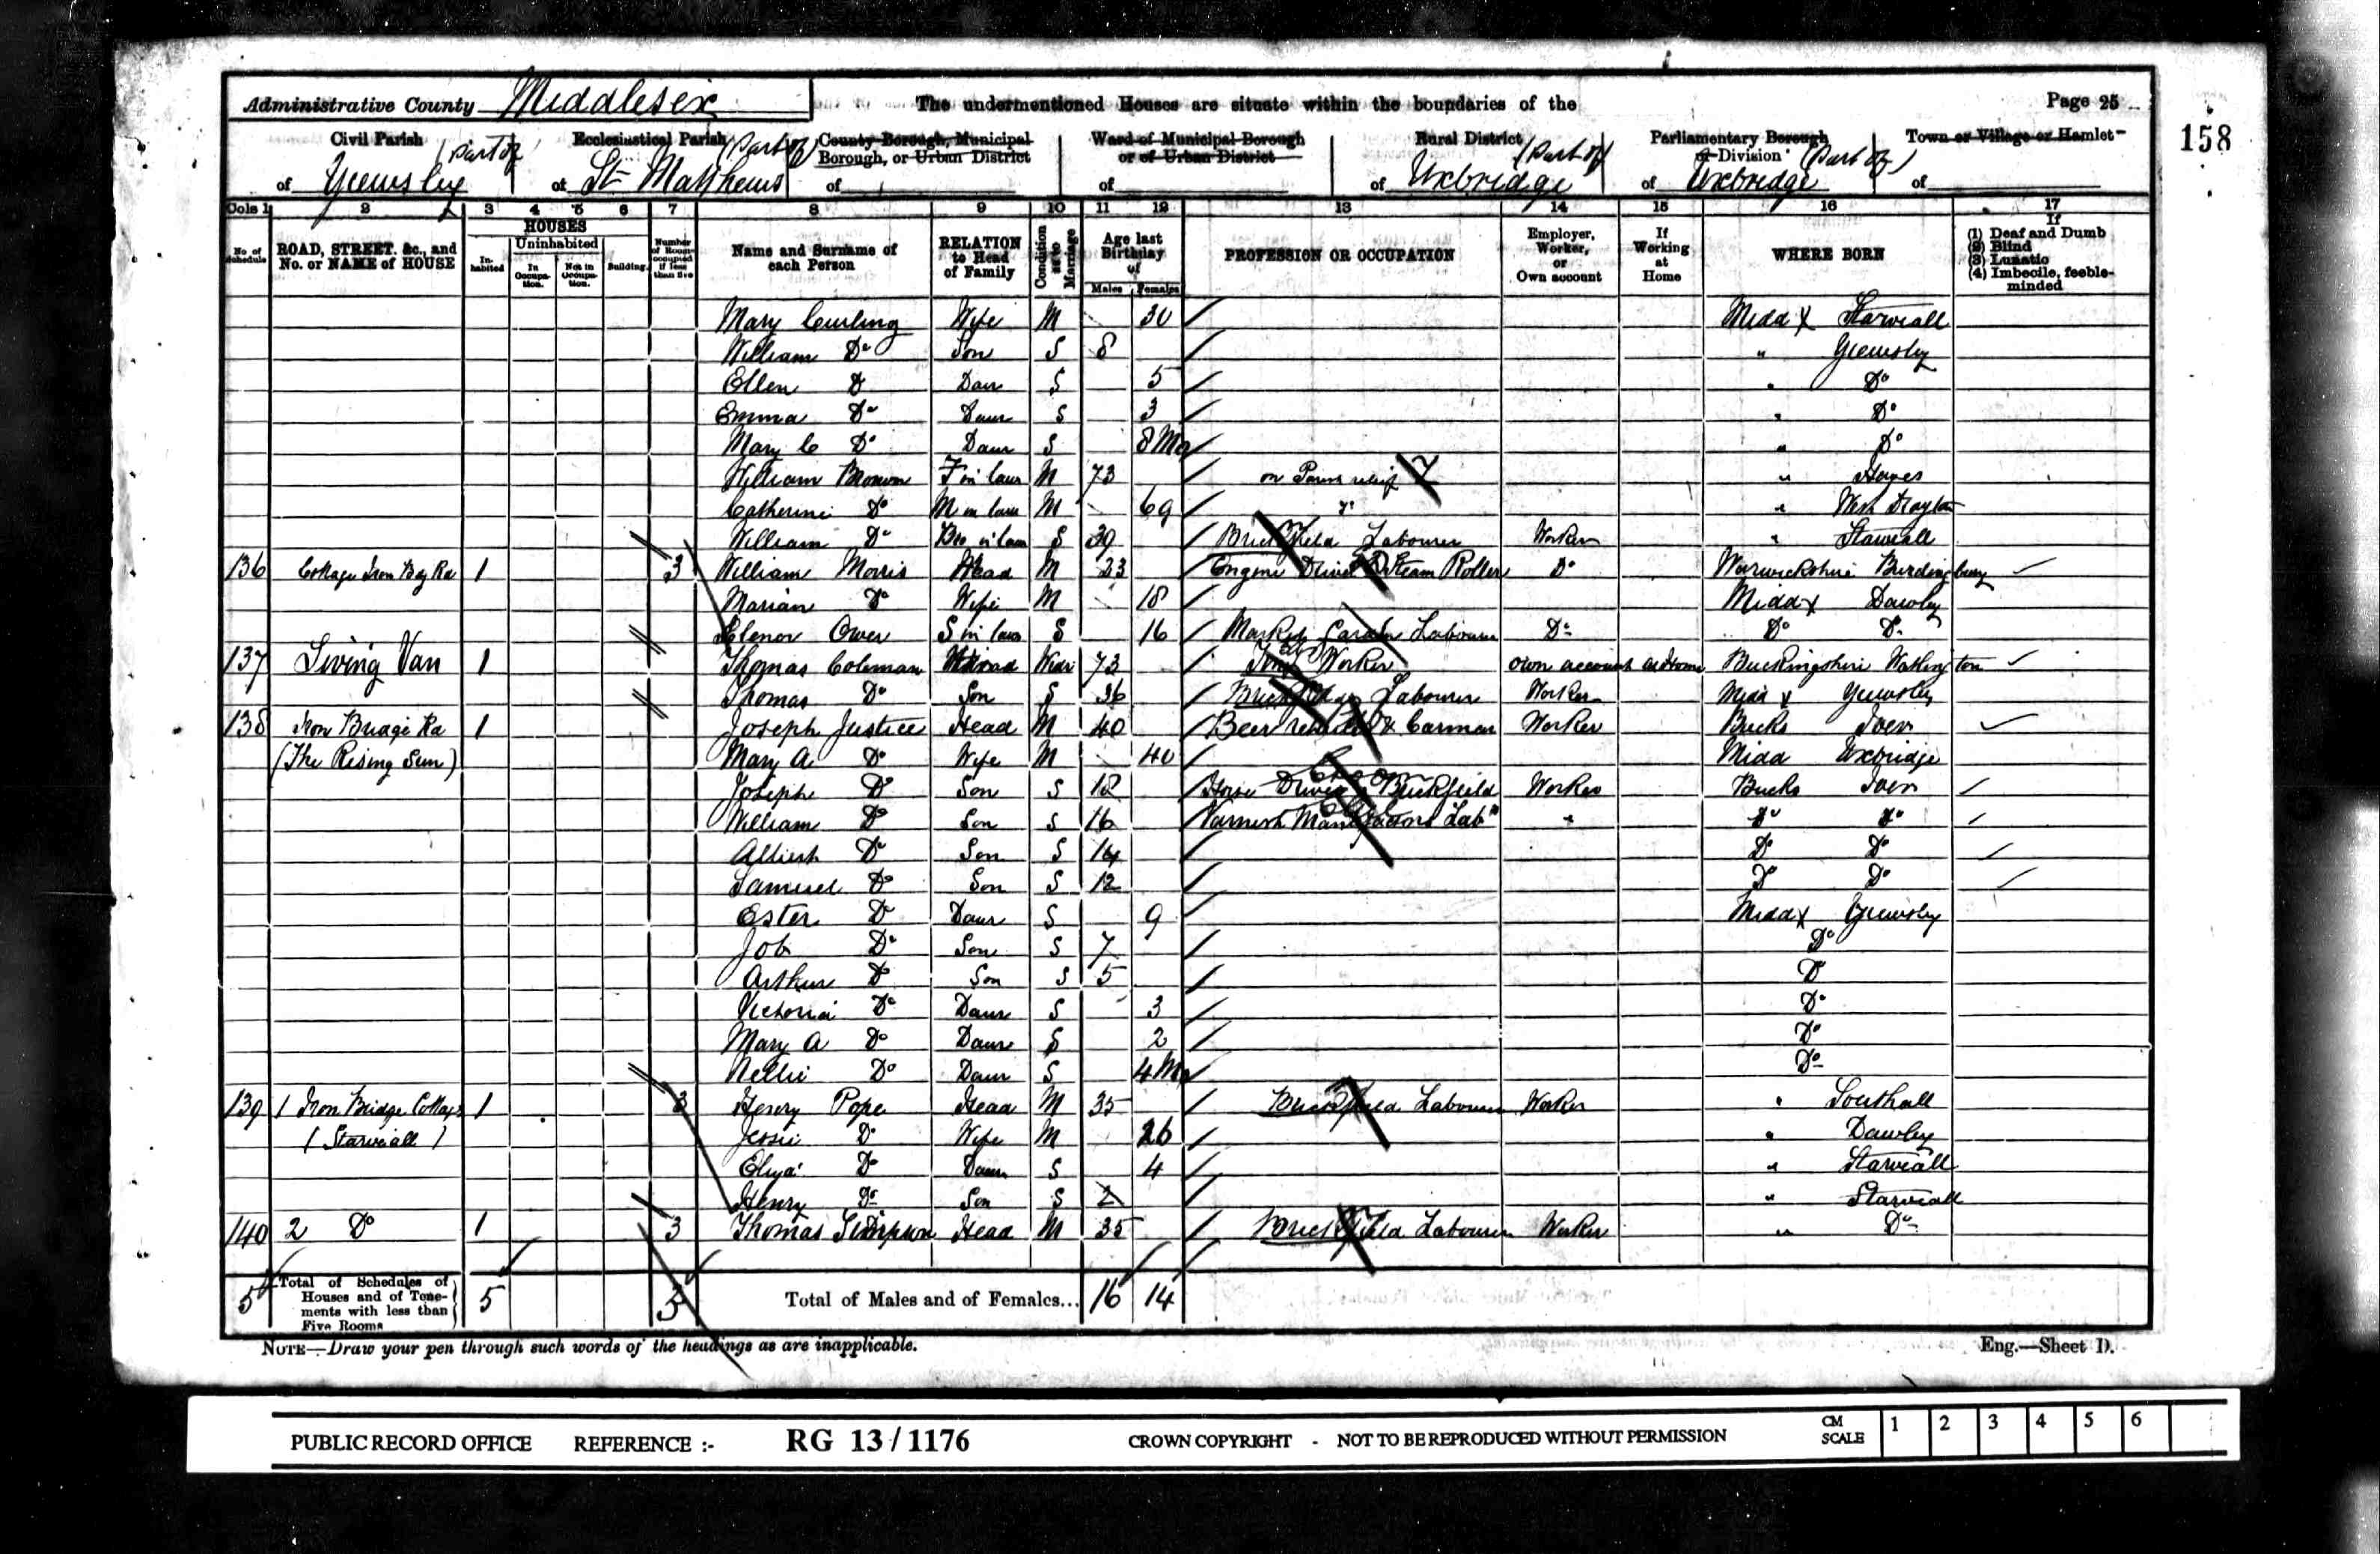 Administrative County Middlesex The undermentioned Houses are situate within the boundaries of the Page 25
158
Civil Parish (part of) of Yiewsley
Ecclesiastical Parish (part of) of St Matthews
County Borough, Municipal Borough, or Urban District of
Ward of Municipal Borough or of Urban District of
Rural District (part of) of Uxbridge
Parliamentary Borough or Division (part of) of Uxbridge
Town or Village or Hamlet of
Cols 1 2 3 4 5 6 7 8 9 10 11 12 13 14 15 16 17
No. of Schedule
ROAD, STREET, &c., and No. or NAME of HOUSE
HOUSES
Inhabited
Uninhabited
In Occupation.
Not in Occupation.
Building.
Number of Rooms occupied if less than five
Name and Surname of each Person
RELATION to Head of Family
Condition as to Marriage
Age last Birthday of
Males Females
PROFESSION OR OCCUPATION
Employer, Worker, or Own account
If Working at Home
WHERE BORN
If
(1) Deaf and Dumb
(2) Blind
(3) Lunatic
(4) Imbecile, feeble-minded
Mary Curling Wife M 30 Middx Starveall
William Do Son S 8 " Yiewsley
Ellen Do Daur S 5 " Do
Emma Do Daur S 3 " Do
Mary C Do Daur S 8 Mo " Do
William Brown F in law M 73 on Parish relief " Hayes
Catherine Do M in law M 69 Do " West Drayton
William Do Bro in law S 39 Brickfield Labourer Worker " Starveall
136 Cottage Iron Bdg Rd 1 3 William Morris Head M 23 Engine Driver Steam Roller Do Warwickshire Birdingbury
Marian Do Wife M 18 Middx Dawley
Elenor Ower S in law S 16 Market Garden Labourer Do Do Do
137 Living Van 1 Thomas Coleman Head Widr 73 Worker own account at Home Buckingshire Watlington
Thomas Do Son S 36 Brickfield Labourer Worker Middx Yiewsley
138 Iron Bridge Rd 1 Joseph Justice Head M 40 Beer retailer & Carman Worker Bucks Iver
(The Rising Sun) Mary A Do Wife M 40 Midd Uxbridge
Joseph Do Son S 18 Horse Driver Brickfield Worker Bucks Iver
William Do Son S 16 Varnish Manufactory Labr " Do Do
Albert Do Son S 14 Do Do
Samuel Do Son S 12 Do Do
Ester Do Daur S 9 Middx Yiewsley
Job Do Son S 7 Do
Arthur Do Son S 5 Do
Victoria Do Daur S 3 Do
Mary A Do Daur S 2 Do
Nellie Do Daur S 4 Mo Do
139 1 Iron Bridge Cottages 1 3 Henry Pope Head M 35 Brickfield Labourer Worker " Southall
(Starveall) Jessie Do Wife M 26 " Dawley
Eliza Do Daur S 4 " Starveall
Henry Do Son S 2 " Starveall
140 2 Do 1 3 Thomas Simpson Head M 35 Brickfield Labourer Worker " Do
5 Total of Schedules of Houses and of Tenements with less than Five Rooms 5 3 Total of Males and of Females... 16 14
NOTE—Draw your pen through such words of the headings as are inapplicable. Eng.—Sheet D.
PUBLIC RECORD OFFICE REFERENCE :- RG 13 / 1176 CROWN COPYRIGHT - NOT TO BE REPRODUCED WITHOUT PERMISSION CM SCALE 1 2 3 4 5 6